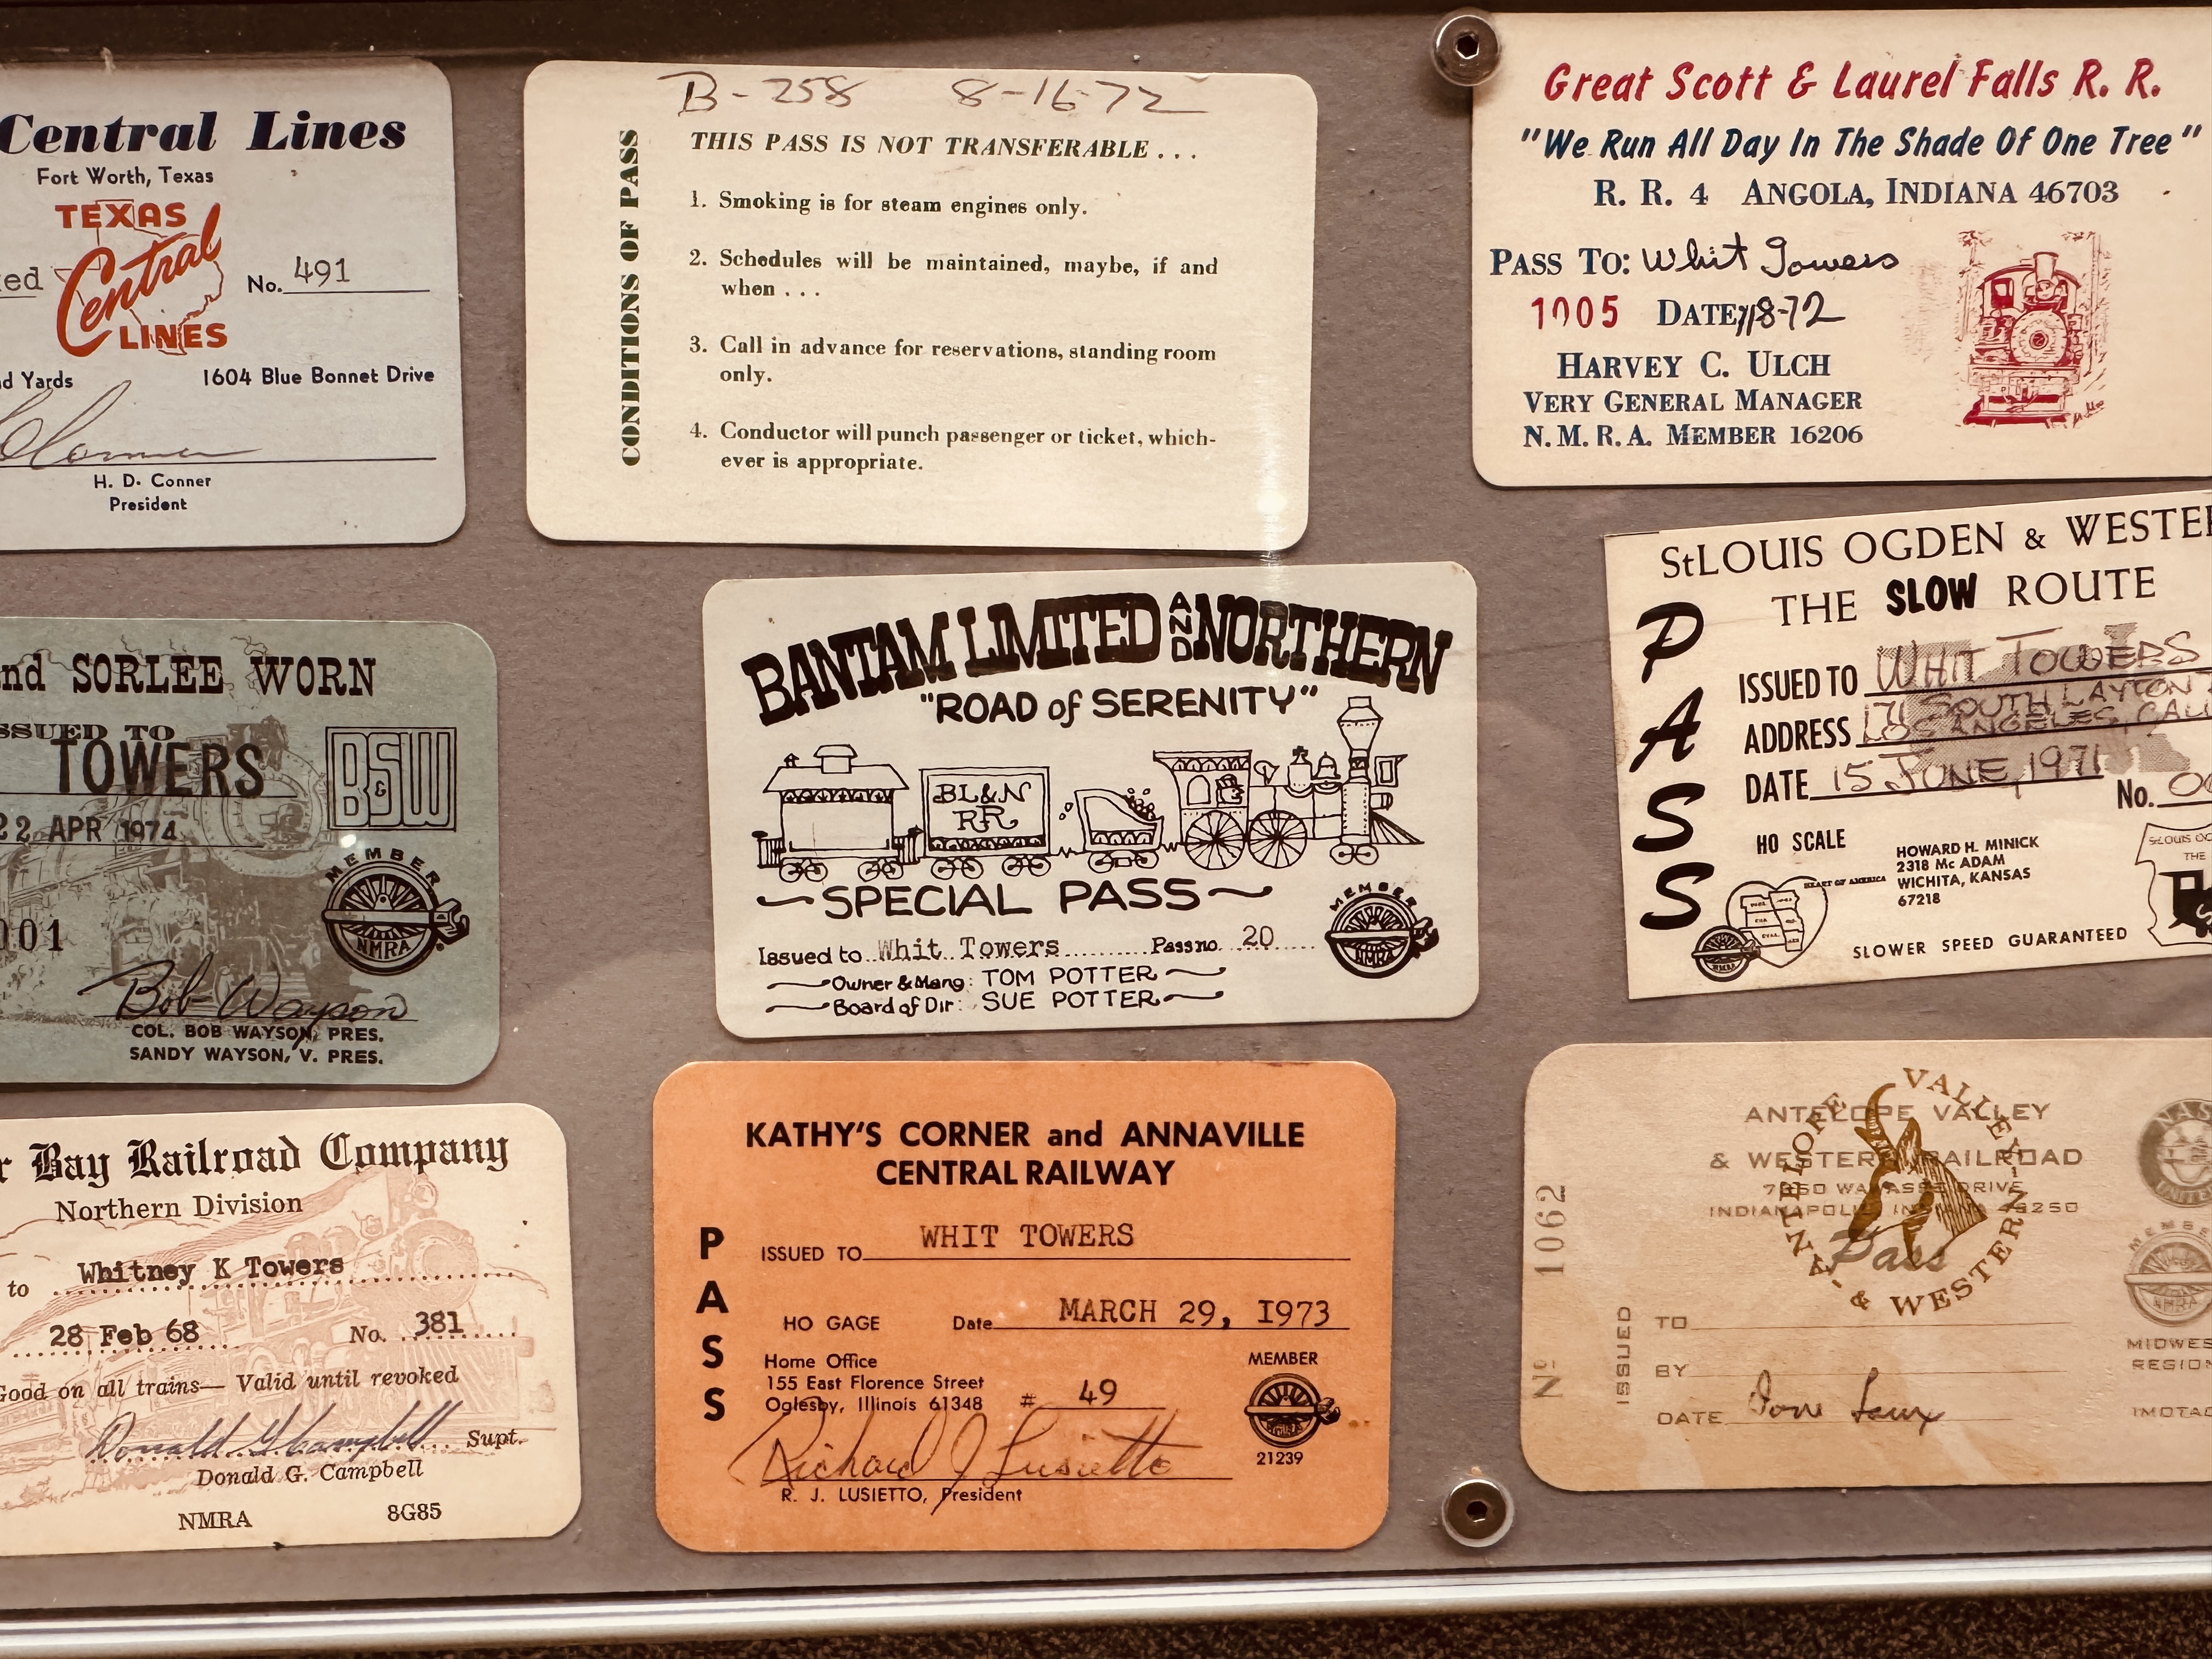 Central Lines
Fort Worth, Texas
TEXAS
Central
LINES
No. 491
1604 Blue Bonnet Drive
H. D. Conner
President
B-258 8-16-72
CONDITIONS OF PASS
THIS PASS IS NOT TRANSFERABLE . . .
1. Smoking is for steam engines only.
2. Schedules will be maintained, maybe, if and
when . . .
3. Call in advance for reservations, standing room
only.
4. Conductor will punch passenger or ticket, which-
ever is appropriate.
Great Scott & Laurel Falls R. R.
"We Run All Day In The Shade Of One Tree"
R. R. 4 ANGOLA, INDIANA 46703
PASS TO: Whit Towers
1005 DATE 7/18-72
HARVEY C. ULCH
VERY GENERAL MANAGER
N. M. R. A. MEMBER 16206
nd SORLEE WORN
ISSUED TO
TOWERS
B&SW
22 APR 1974
MEMBER
NMRA
001
Bob Wayson
COL. BOB WAYSON, PRES.
SANDY WAYSON, V. PRES.
BANTAM LIMITED AND NORTHERN
"ROAD of SERENITY"
BL&N
RR
SPECIAL PASS
MEMBER
NMRA
Issued to Whit Towers Pass no. 20
Owner & Mang: TOM POTTER
Board of Dir: SUE POTTER
StLOUIS OGDEN & WESTE
THE SLOW ROUTE
PASS
ISSUED TO WHIT TOWERS
ADDRESS 171 SOUTH LAYTON
LOS ANGELES, CAL
DATE 15 JUNE, 1971
No.
HO SCALE
HOWARD H. MINICK
2318 Mc ADAM
WICHITA, KANSAS
67218
HEART OF AMERICA
NMRA
SLOWER SPEED GUARANTEED
r Bay Railroad Company
Northern Division
to Whitney K Towers
28 Feb 68 No. 381
Good on all trains— Valid until revoked
Donald G. Campbell Supt.
Donald G. Campbell
NMRA 8G85
KATHY'S CORNER and ANNAVILLE
CENTRAL RAILWAY
PASS
ISSUED TO WHIT TOWERS
HO GAGE Date MARCH 29, 1973
Home Office
155 East Florence Street
Oglesby, Illinois 61348
# 49
MEMBER
21239
Richard J Lusietto
R. J. LUSIETTO, President
ANTELOPE VALLEY
& WESTERN RAILROAD
ANTELOPE VALLEY & WESTERN
Pass
No 1062
ISSUED
TO
BY
DATE
MIDWES
REGION